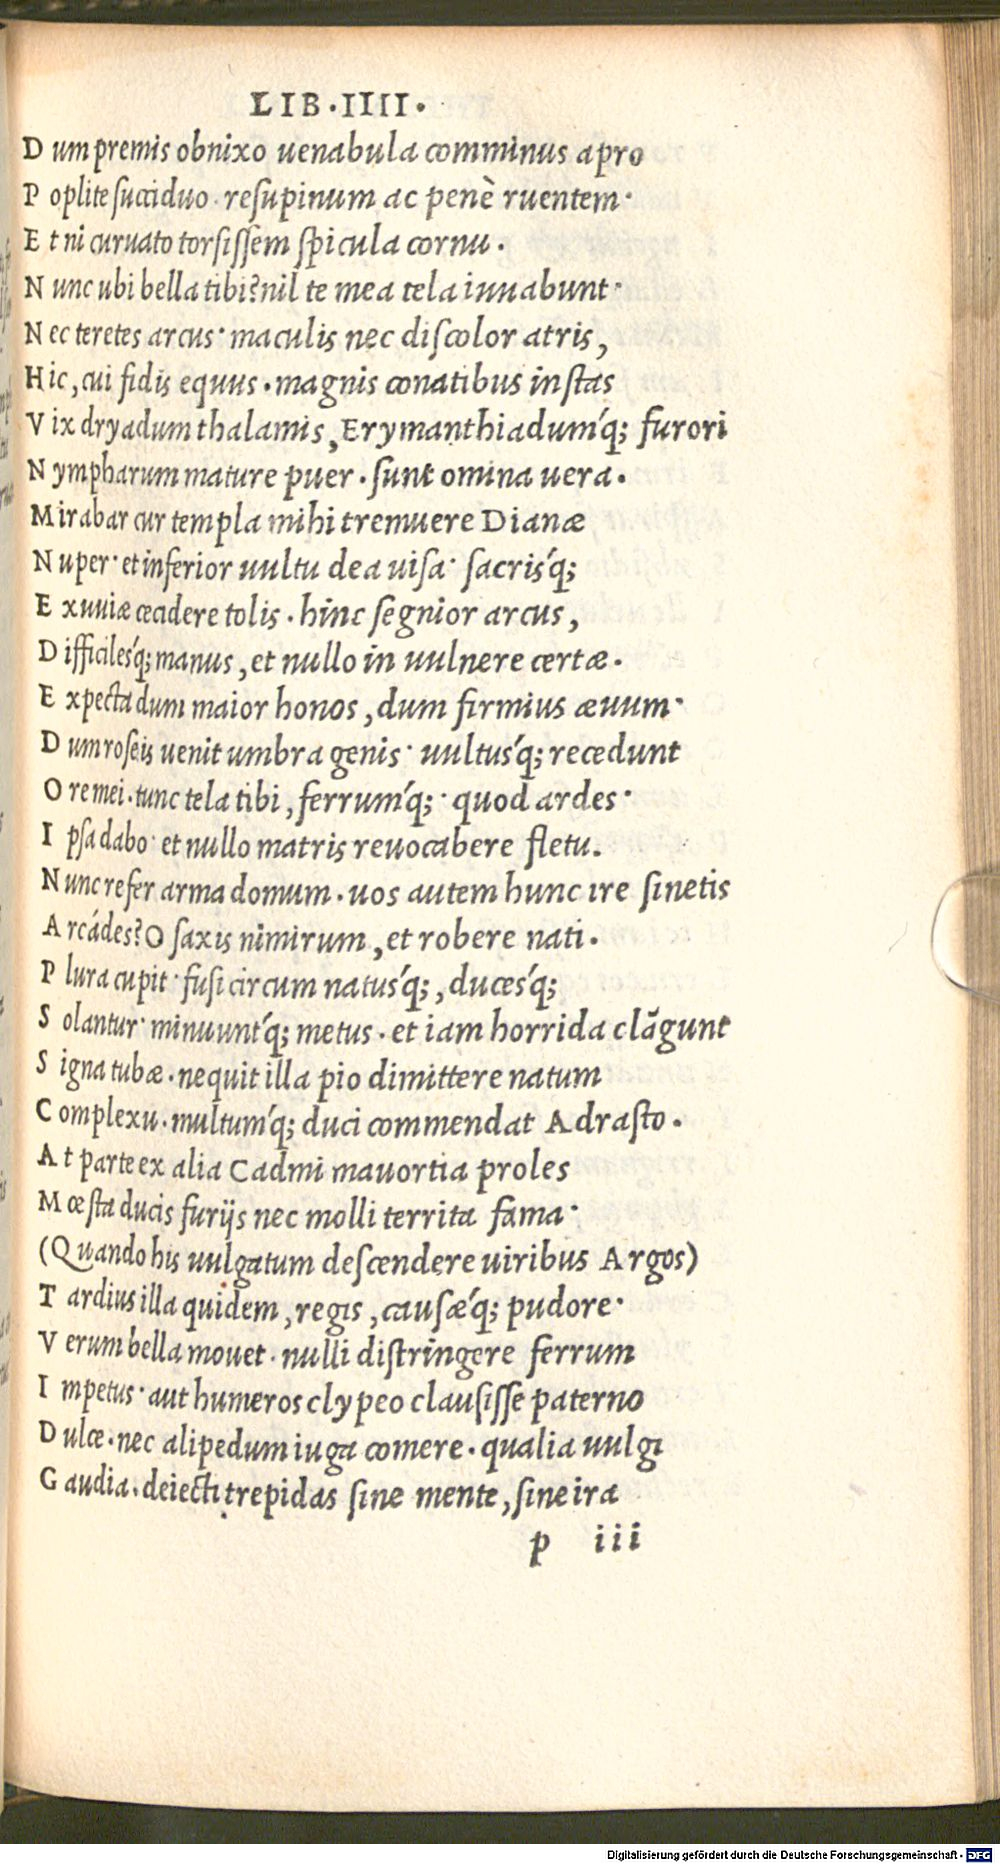 LIB·IIII·
D um premis obnixo uenabula comminus apro
P oplite succiduo· resupinum ac penè ruentem·
E t ni curuato torsissem spicula cornu·
N unc ubi bella tibi? nil te mea tela iuuabunt·
N ec teretes arcus· maculis nec discolor atris,
H ic, cui fidis equus·magnis conatibus instas
V ix dryadum thalamis, Erymanthiadumq́; furori
N ympharum mature puer·sunt omina uera·
M irabar cur templa mihi tremuere Dianæ
N uper· et inferior uultu dea uisa· sacrisq́;
E xuuiæ cecidere tolis·hinc segnior arcus,
D ifficilesq́; manus, et nullo in uulnere certæ·
E xpecta dum maior honos, dum firmius æuum·
D um roseis uenit umbra genis· uultusq́; recedunt
O re mei·tunc tela tibi, ferrumq́;· quod ardes·
I psa dabo· et nullo matris reuocabere fletu.
N unc refer arma domum·uos autem hunc ire sinetis
A rcádes? O saxis nimirum, et robere nati·
P lura cupit· fusi circum natusq́;, ducesq́;
S olantur· minuuntq́; metus·et iam horrida clāgunt
S igna tubæ·nequit illa pio dimittere natum
C omplexu·multumq́; duci commendat Adrasto·
A t parte ex alia Cadmi mauortia proles
M œsta ducis furijs nec molli territa fama·
(Quando his uulgatum descendere uiribus Argos)
T ardius illa quidem, regis, causæq́; pudore·
V erum bella mouet·nulli distringere ferrum
I mpetus· aut humeros clypeo clausisse paterno
D ulce·nec alipedum iuga comere·qualia uulgi
G audia·deiecti trepidas sine mente, sine ira
p iii
Digitalisierung gefördert durch die Deutsche Forschungsgemeinschaft - DFG